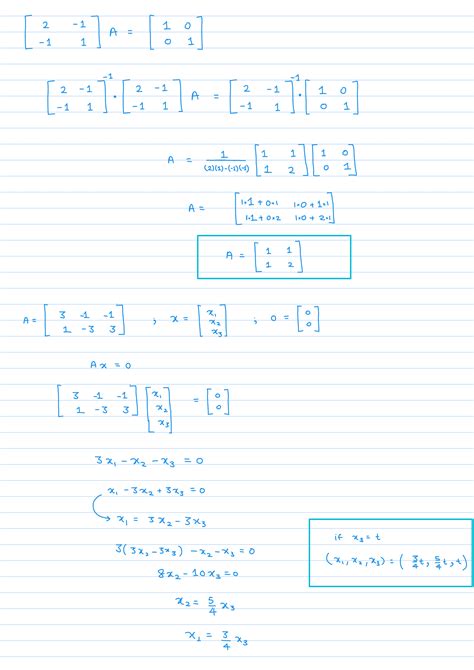 [2 -1; -1 1] A = [1 0; 0 1]
[2 -1; -1 1]⁻¹ · [2 -1; -1 1] A = [2 -1; -1 1]⁻¹ · [1 0; 0 1]
A = 1/((2)(1)-(-1)(-1)) [1 1; 1 2] [1 0; 0 1]
A = [1·1+0·1 1·0+1·1; 1·1+0·2 1·0+2·1]
A = [1 1; 1 2]
A = [3 -1 -1; 1 -3 3] ; x = [x₁; x₂; x₃] ; 0 = [0; 0]
Ax = 0
[3 -1 -1; 1 -3 3] [x₁; x₂; x₃] = [0; 0]
3x₁ - x₂ - x₃ = 0
x₁ - 3x₂ + 3x₃ = 0
x₁ = 3x₂ - 3x₃
3(3x₂ - 3x₃) - x₂ - x₃ = 0
8x₂ - 10x₃ = 0
x₂ = 5/4 x₃
x₁ = 3/4 x₃
if x₃ = t
(x₁, x₂, x₃) = (3/4 t, 5/4 t, t)